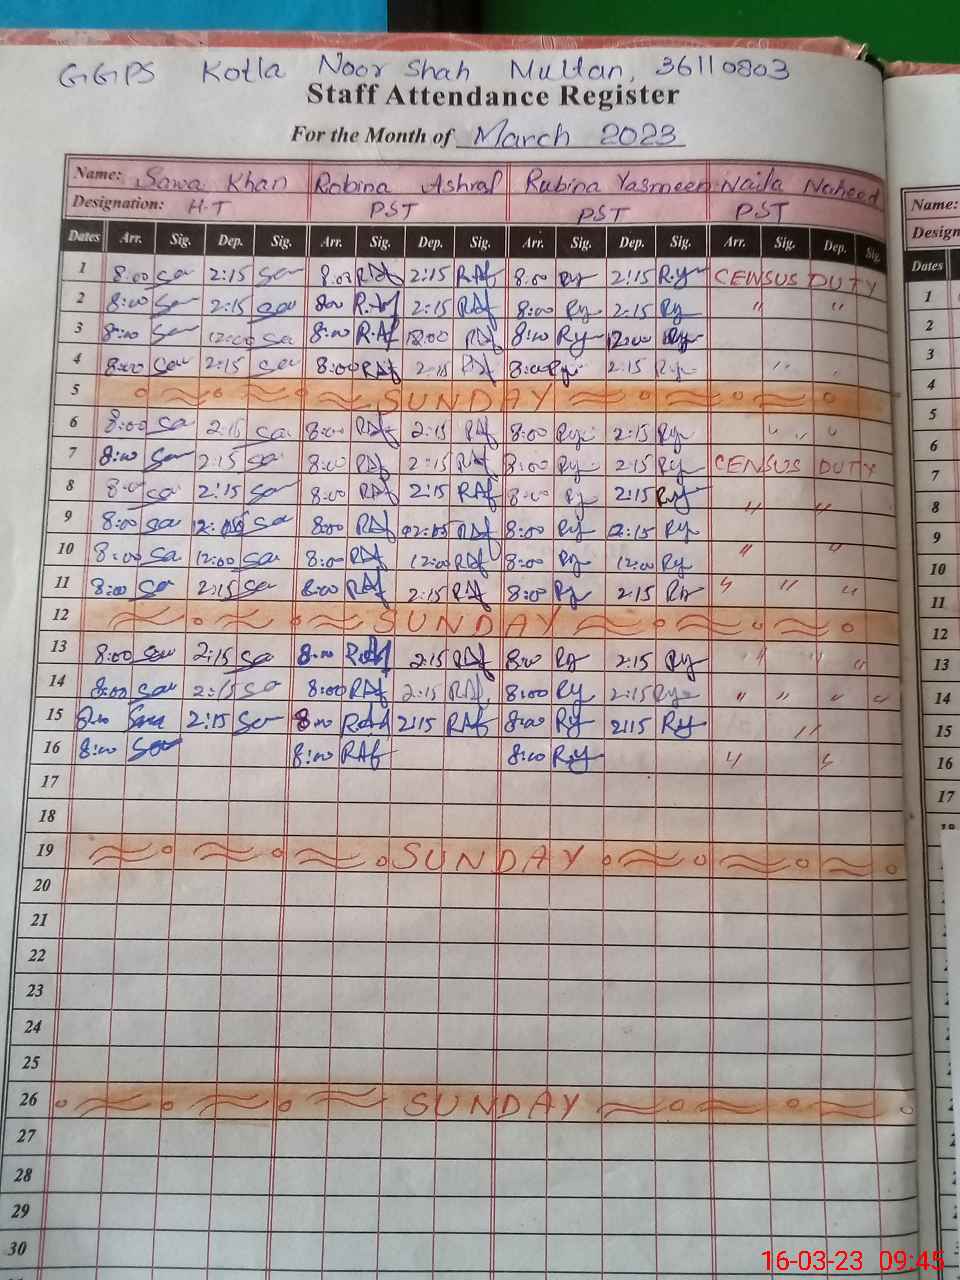 GGPS Kotla Noor Shah Multan, 36110803
Staff Attendance Register
For the Month of March 2023
Name: Sawa Khan Robina Ashraf Rubina Yasmeen Naila Naheed Name:
Designation: H.T PST PST PST Design
Dates Arr. Sig. Dep. Sig. Arr. Sig. Dep. Sig. Arr. Sig. Dep. Sig. Arr. Sig. Dep. Sig. Dates
1 8:00 sa 2:15 sa 8:00 RAf 2:15 RAf 8:00 Ry 2:15 Ry CENSUS DUTY 1
2 8:00 sa 2:15 sa 8:00 R.Af 2:15 RAf 8:00 Ry 2:15 Ry " " 2
3 8:00 sa 12:00 sa 8:00 R.Af 12:00 RAf 8:00 Ry 12:00 Ry 3
4 8:00 sa 2:15 sa 8:00 RAf 2:15 RAf 8:00 Ry 2:15 Ry " " 4
5 SUNDAY 5
6 8:00 sa 2:15 sa 8:00 RAf 2:15 RAf 8:00 Ry 2:15 Ry " " " 6
7 8:00 sa 2:15 sa 8:00 RAf 2:15 RAf 8:00 Ry 2:15 Ry CENSUS DUTY 7
8 8:00 sa 2:15 sa 8:00 RAf 2:15 RAf 8:00 Ry 2:15 Ry " " 8
9 8:00 sa sa 8:00 RAf 02:15 RAf 8:00 Ry 02:15 Ry 9
10 8:00 sa 12:00 sa 8:00 RAf 12:00 RAf 8:00 Ry 12:00 Ry " " 10
11 8:00 sa 2:15 sa 8:00 RAf 2:15 RAf 8:00 Ry 2:15 Ry " " " 11
12 SUNDAY 12
13 8:00 sa 2:15 sa 8:00 RAf 2:15 RAf 8:00 Ry 2:15 Ry " " " 13
14 8:00 sa 2:15 sa 8:00 RAf 2:15 RAf 8:00 Ry 2:15 Ry " " " " 14
15 8:00 sa 2:15 sa 8:00 RAf 2:15 RAf 8:00 Ry 2:15 Ry " 15
16 8:00 sa 8:00 RAf 8:00 Ry " " 16
17 17
18
19 SUNDAY
20
21
22
23
24
25
26 SUNDAY
27
28
29
30
16-03-23 09:45